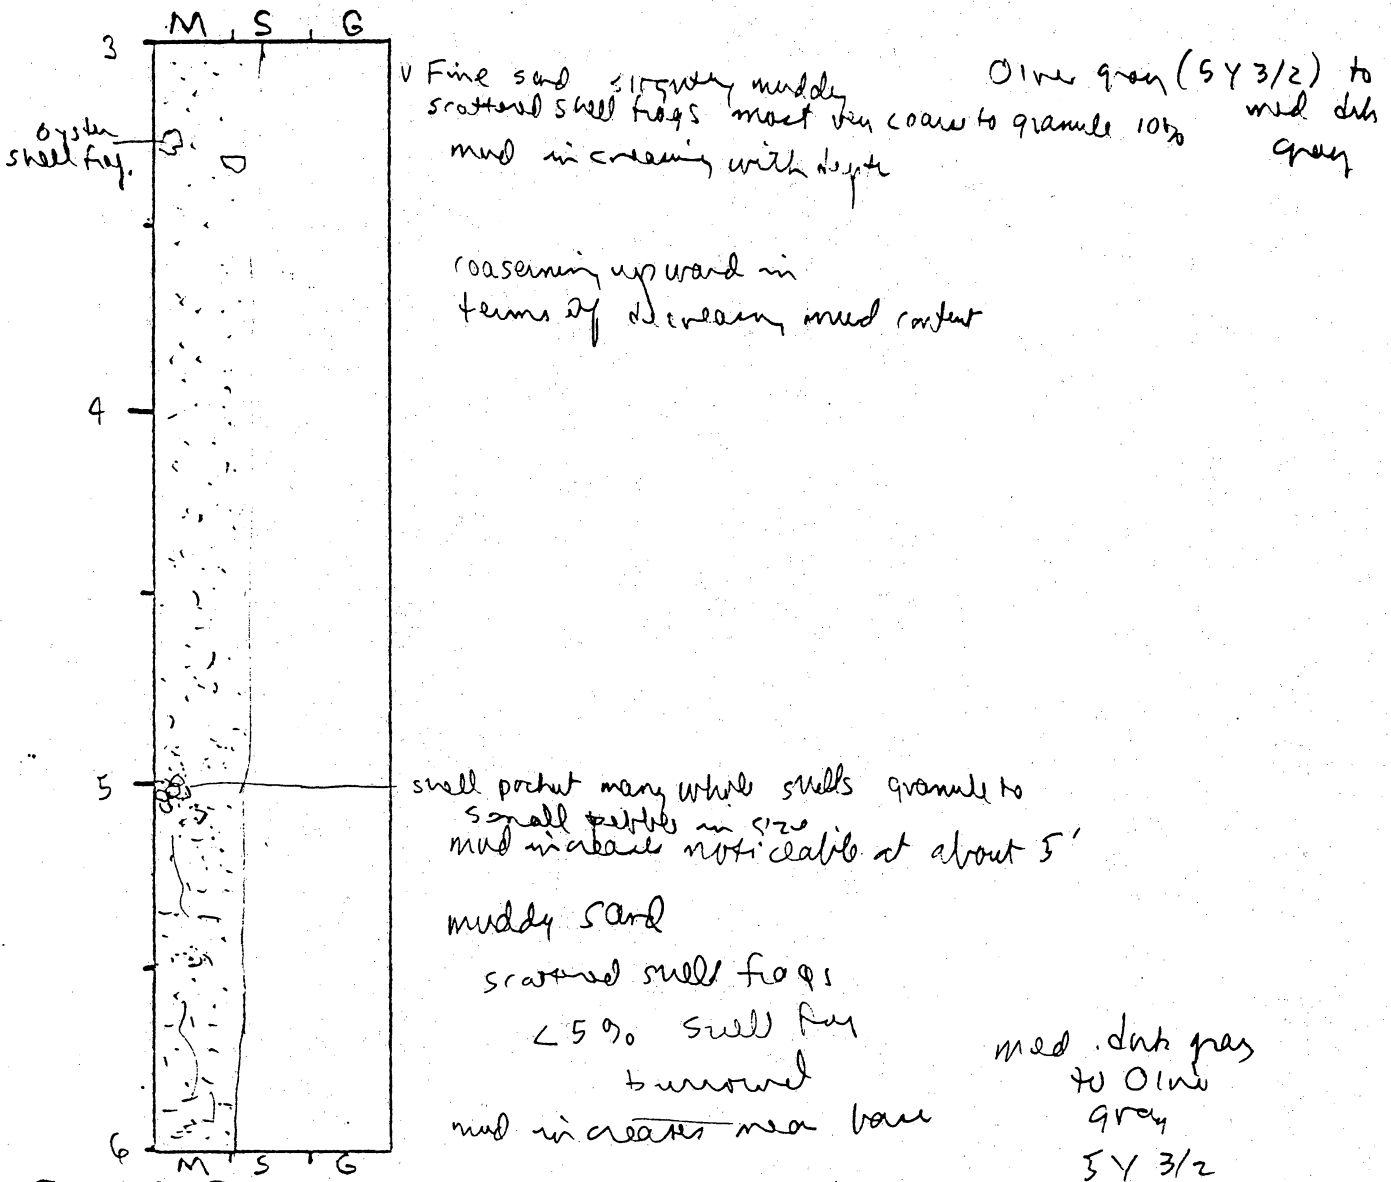 M S G
3
V Fine sand slightly muddy
scattered shell frags most very coarse to granule 10%
mud increasing with depth
Olive gray (5Y 3/2) to
med drk
gray
oyster
shell frag.
coasening upward in
terms of decreasing mud content
4
5
shell pocket many whole shells granule to
small pebble in size
mud increases noticeable at about 5'
muddy sand
scattered shell frags
<5% shell frag
burrowed
mud increases near base
med. drk gray
to Olive
gray
5Y 3/2
6
M S G